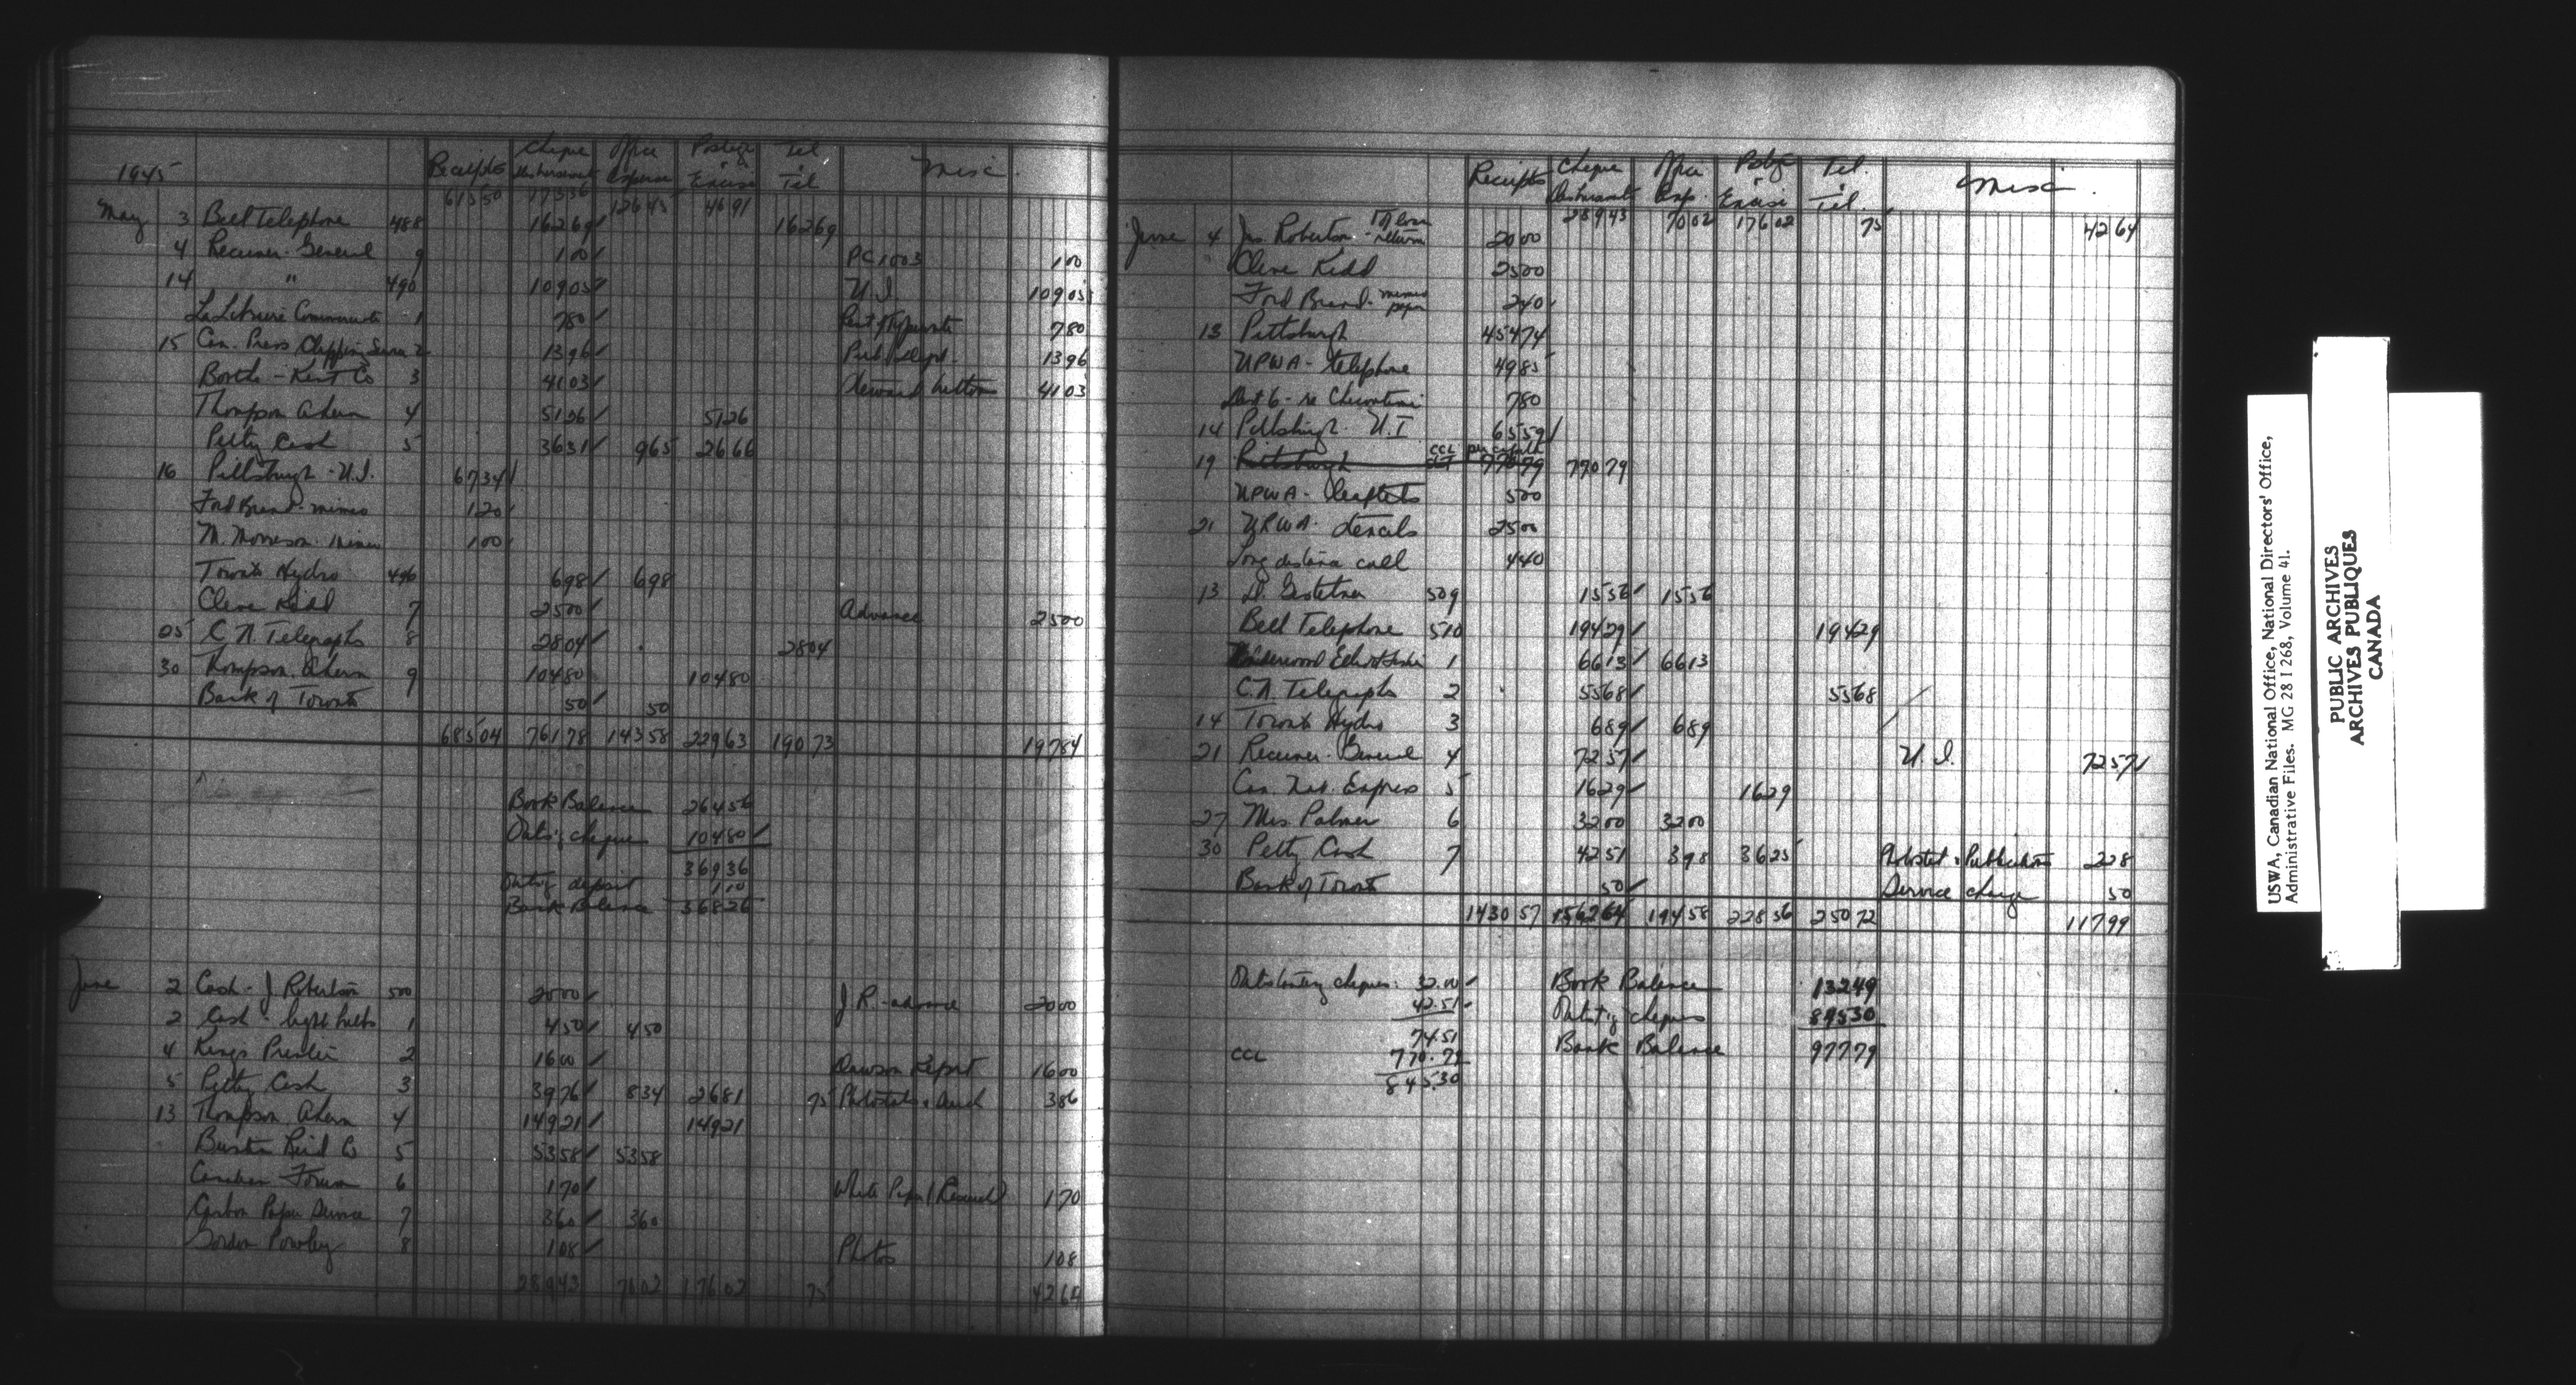 1945 Receipts Cheque Disbursements Office Expense Postage & Excise Tel & Tel Misc.
615 50 173 36 126 45 46 91
May 3 Bell Telephone 488 162 69 162 69
4 Receiver-General 9 1 00 PC 1003 1 00
14 " 490 109 05 U.I. 109 05
1 7 80 Rent of Typewriter 7 80
15 Can. Press Clipping Service 2 13 96 Publ. Dept. 13 96
3 41 03 41 03
Thompson Ahern 4 51 26 51 26
Petty Cash 5 36 31 9 65 26 66
16 Pittsburgh - U.I. 67 34
Ford Brand - mimeo 1 20
M. Morrison - mimeo 1 00
Toronto Hydro 496 6 98 6 98
Cleve Kidd 7 25 00 Advance 25 00
25 C.N. Telegraphs 8 28 04 28 04
30 Thompson Ahern 9 104 80 104 80
Bank of Toronto 50 50
685 04 761 78 143 58 229 63 190 73 197 84
Book Balance 264 56
Outs'g cheque 104 80
369 36
Outs'g deposit 1 10
Bank Balance 368 26
June 2 Cash - J Robertson 500 20 00 J R. - advance 20 00
2 Cash - light bulbs 1 4 50 4 50
4 Kings Printer 2 16 00 Dawson Report 16 00
5 Petty Cash 3 39 76 8 34 26 81 75 Photostats & 3 86
13 Thompson Ahern 4 149 21 149 21
Reid Co 5 53 58 53 58
Canadian Forum 6 1 70 White Paper (Research) 1 70
Carbon Paper Service 7 3 60 3 60
Gordon Powley 8 1 08 Photos 1 08
289 43 70 02 176 02 75 42 64
Receipts Cheque Disbursements Office Exp. Postge & Excise Tel. & Tel. Misc.
289 43 70 02 176 02 75 42 64
June 4 Jas. Robertson - return 20 00
" Cleve Kidd 25 00
Ford Brand - mimeo paper 2 40
13 Pittsburgh 454 74
UPWA - telephone 49 85
Dist 6 - re Chicoutimi 7 80
14 Pittsburgh U.I 65 59
19 Pittsburgh CCL per capita 770 79 770 79
UPWA - leaflets 5 00
21 URWA - stencils 25 00
Long distance call 4 40
13 D. Gestetner 509 15 56 15 56
Bell Telephone 510 194 29 194 29
Underwood Elliott Fisher 1 66 13 66 13
C.N. Telegraphs 2 55 68 55 68
14 Toronto Hydro 3 6 89 6 89
21 Receiver-General 4 72 57 U.I. 72 57
Can. Nat. Express 5 16 29 16 29
27 Mrs. Palmer 6 32 00 32 00
30 Petty Cash 7 42 51 3 98 36 25 Photostat & Publications 2 28
Bank of Toronto 50 Service charge 50
1430 57 1562 64 194 58 228 56 250 72 117 99
Outstanding cheques: 32.00 Book Balance 132 49
42.51 Outst'g cheques 845 30
74.51 Bank Balance 977 79
CCL 770.79
845.30
USWA, Canadian National Office, National Directors' Office,
Administrative Files. MG 28 I 268, Volume 41.
PUBLIC ARCHIVES
ARCHIVES PUBLIQUES
CANADA